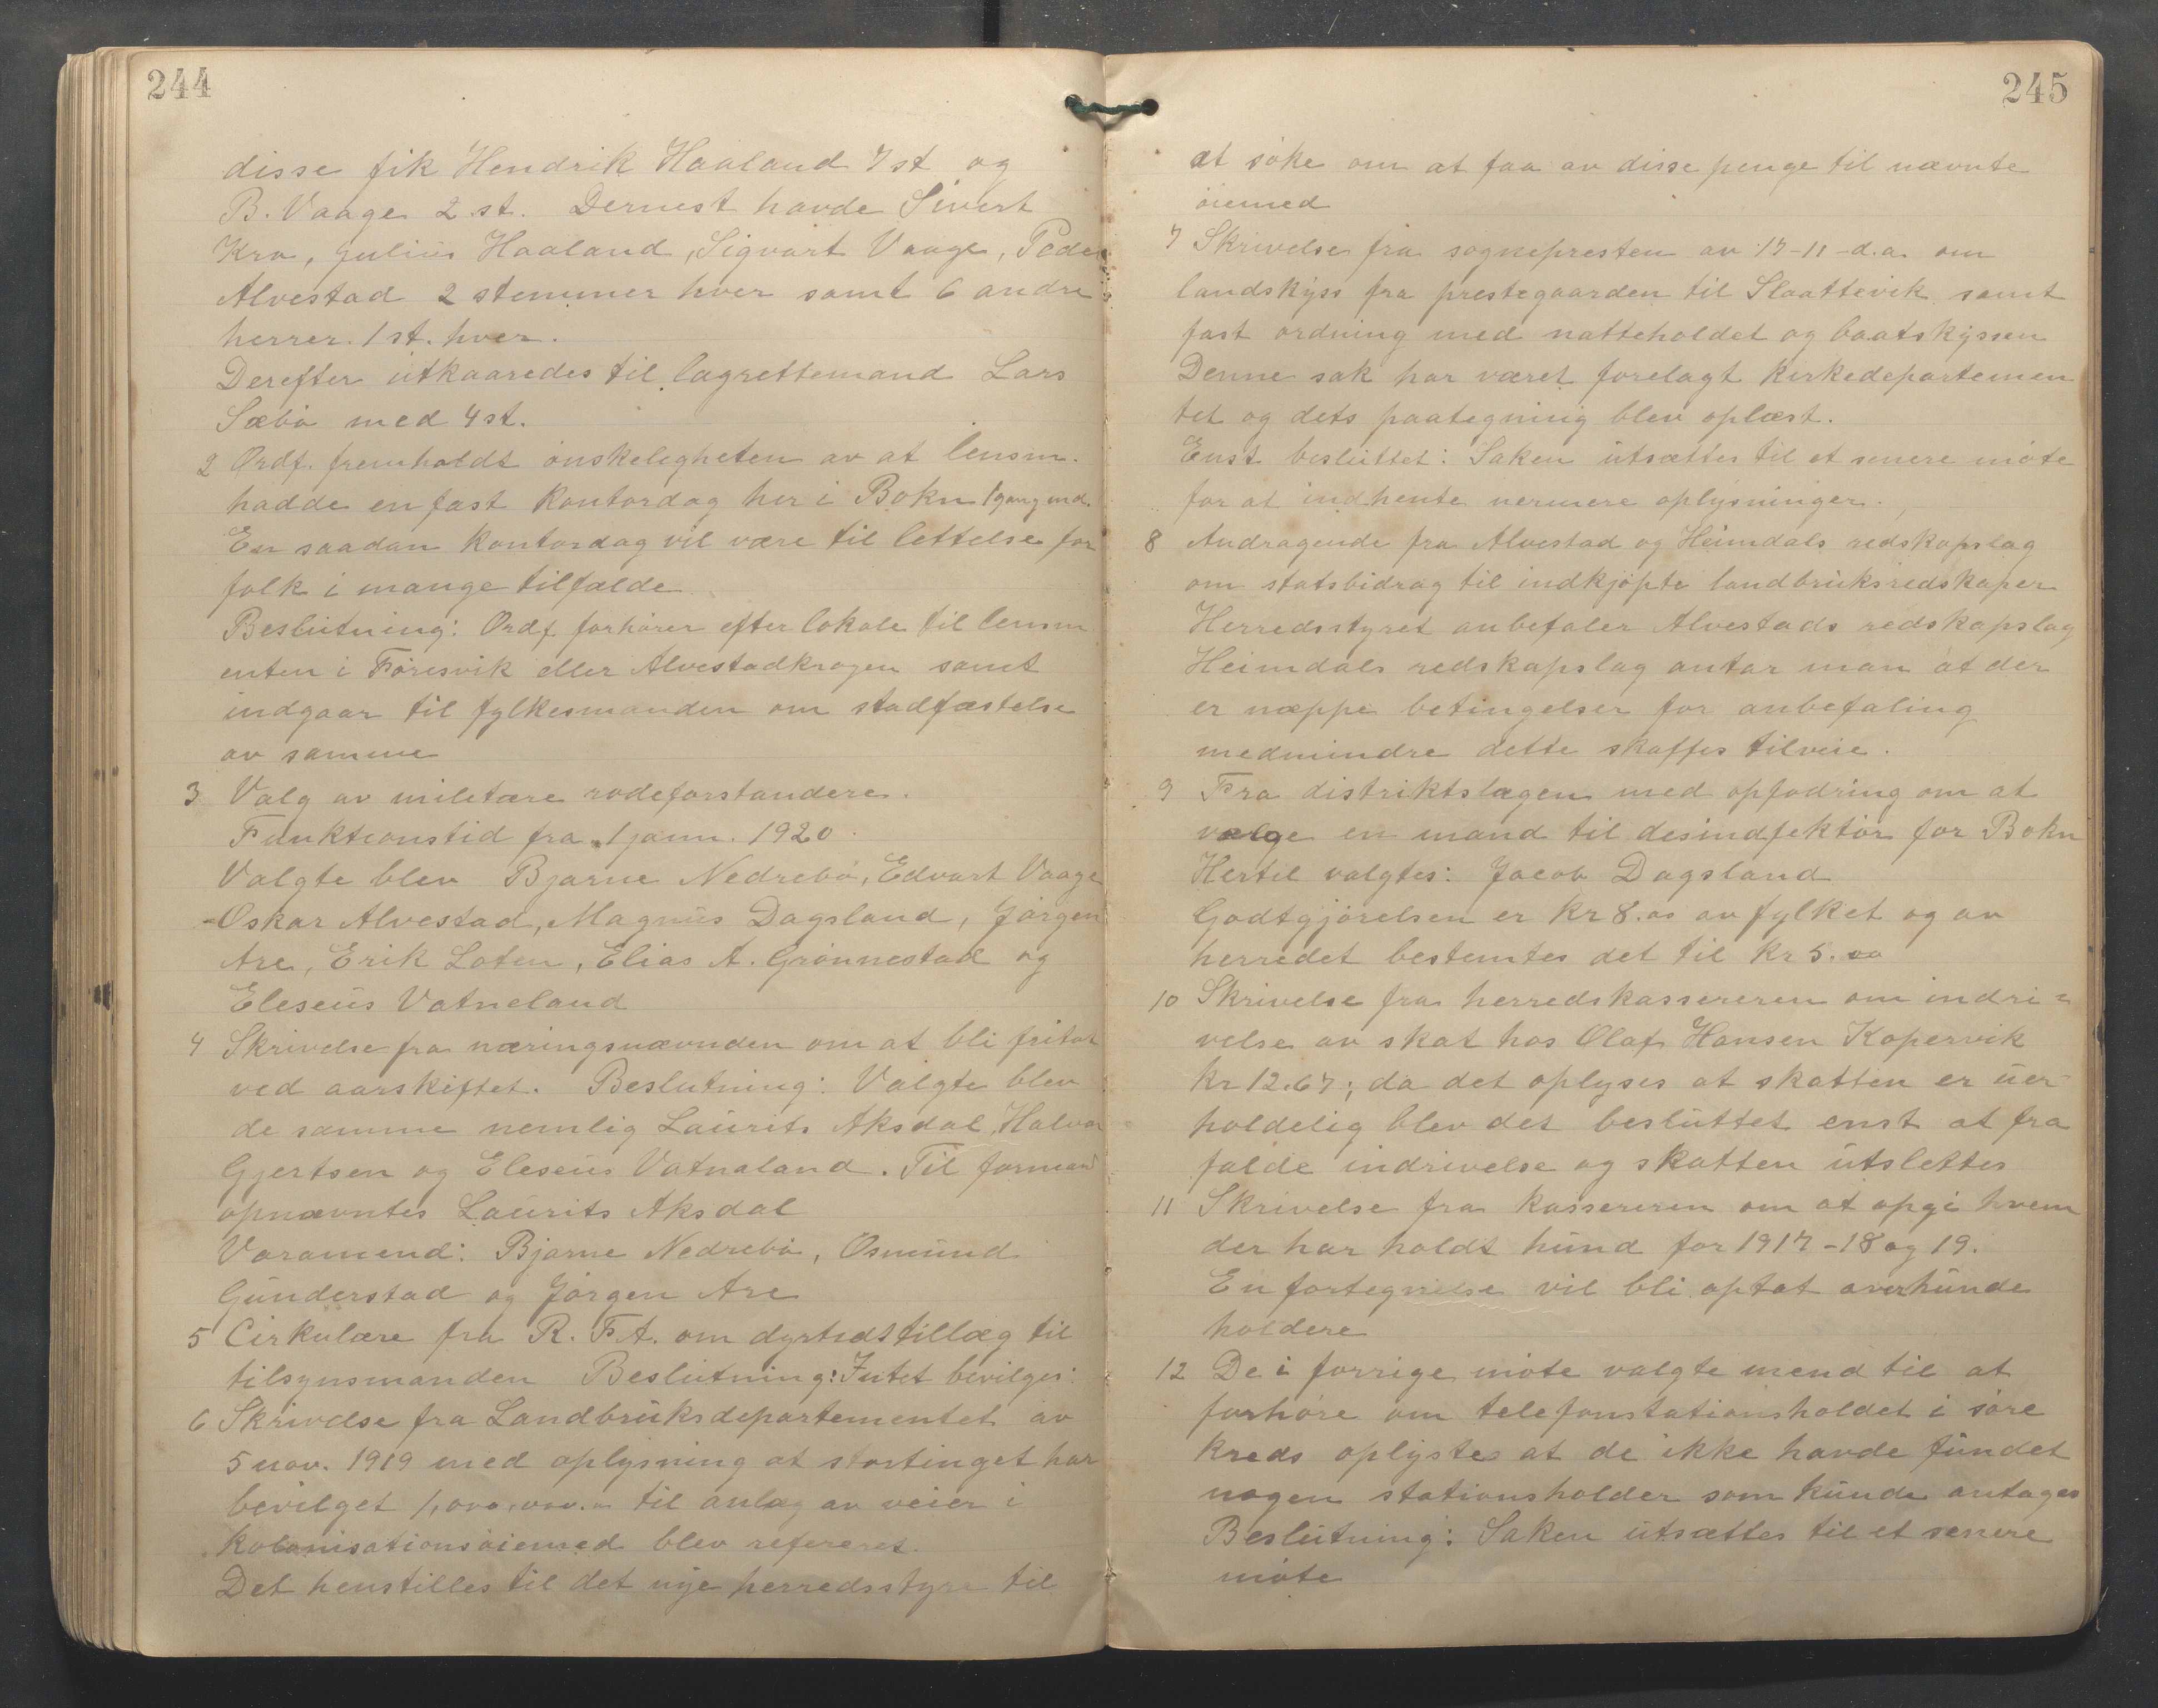 244
disse fik Hendrik Haaland 7 st og
B. Vaage 2 st. Dernest havde Sivert
Kro, Julius Haaland, Sigvart Vaage, Peder
Alvestad 2 stemmer hver samt 6 andre
herrer. 1 st. hver.
Derefter utkaaredes til lagrettemand Lars
Sæbö med 4 st.
2 Ordf. fremholdt önskeligheten av at lensm.
hadde en fast kontordag her i Bokn 1 gang md.
En saadan kontordag vil være til lettelse for
folk i mange tilfælde
Beslutning: Ordf. forhörer efter lokale til lensm
enten i Föresvik eller Alvestadkrogen samt
indgaar til fylkesmanden om stadfæstelse
av samme
3 Valg av militære rodeforstandere.
Funktionstid fra 1 jann. 1920.
Valgte blev Bjarne Nedrebö, Edvart Vaage
Oskar Alvestad, Magnus Dagsland, Jörgen
Are, Erik Loten, Elias A. Grönnestad og
Eleseus Vatneland
4 Skrivelse fra næringsnævnden om at bli fritat
ved aarskiftet. Beslutning: Valgte blev
de samme nemlig Laurits Aksdal, Halvor
Gjertsen og Eleseus Vatnaland. Til formand
opnævntes Laurits Aksdal
Varamend: Bjarne Nedrebö, Osmund
Gunderstad og Jörgen Are
5 Cirkulære fra R. F. A. om dyrtidstillæg til
tilsynsmanden Beslutning: Intet bevilges:
6 Skrivelse fra Landbruksdepartementet av
5 nov. 1919 med oplysning at stortinget har
bevilget 1,000,000.00 til anlæg av veier i
kolonisationsöiemed blev refereret.
Det henstilles til det nye herredsstyre til
245
at söke om at faa av disse penge til nævnte
öiemed
7 Skrivelse fra sognepresten av 17-11-d.a. om
landskyss fra prestegaarden til Slaattevik samt
fast ordning med natteholdet og baatskyssen
Denne sak har været forelagt kirkedepartemen
tet og dets paategning blev oplæst.
Enst besluttet: Saken utsættes til et senere möte
for at indhente nermere oplysninger.
8 Andragende fra Alvestad og Heimdals redskapslag
om statsbidrag til indkjöpte landbruksredskaper
Herredsstyret anbefaler Alvestads redskapslag
Heimdals redskapslag antar man at der
er næppe betingelser for anbefaling
medmindre dette skaffes tilveie.
9 Fra distriktslægen med opfodring om at
vælge en mand til desindfektör for Bokn
Hertil valgtes: Jacob Dagsland
Godtgjörelsen er kr 8.00 av fylket og av
herredet bestemtes det til kr 5.00
10 Skrivelse fra herredskassereren om indri-
velse av skat hos Olaf Hansen Kopervik
kr 12.67; da det oplyses at skatten er uer-
holdelig blev det besluttet enst at fra
falde indrivelse og skatten utslettes
11 Skrivelse fra kassereren om at opgi hvem
der har holdt hund for 1917-18 og 19.
En fortegnelse vil bli optat over hunde
holdere
12 De i forrige möte valgte mend til at
forhöre om telefonstationsholdet i söre
kreds oplyste at de ikke havde fundet
nogen stationsholder som kunde antages
Beslutning: Saken utsættes til et senere
möte